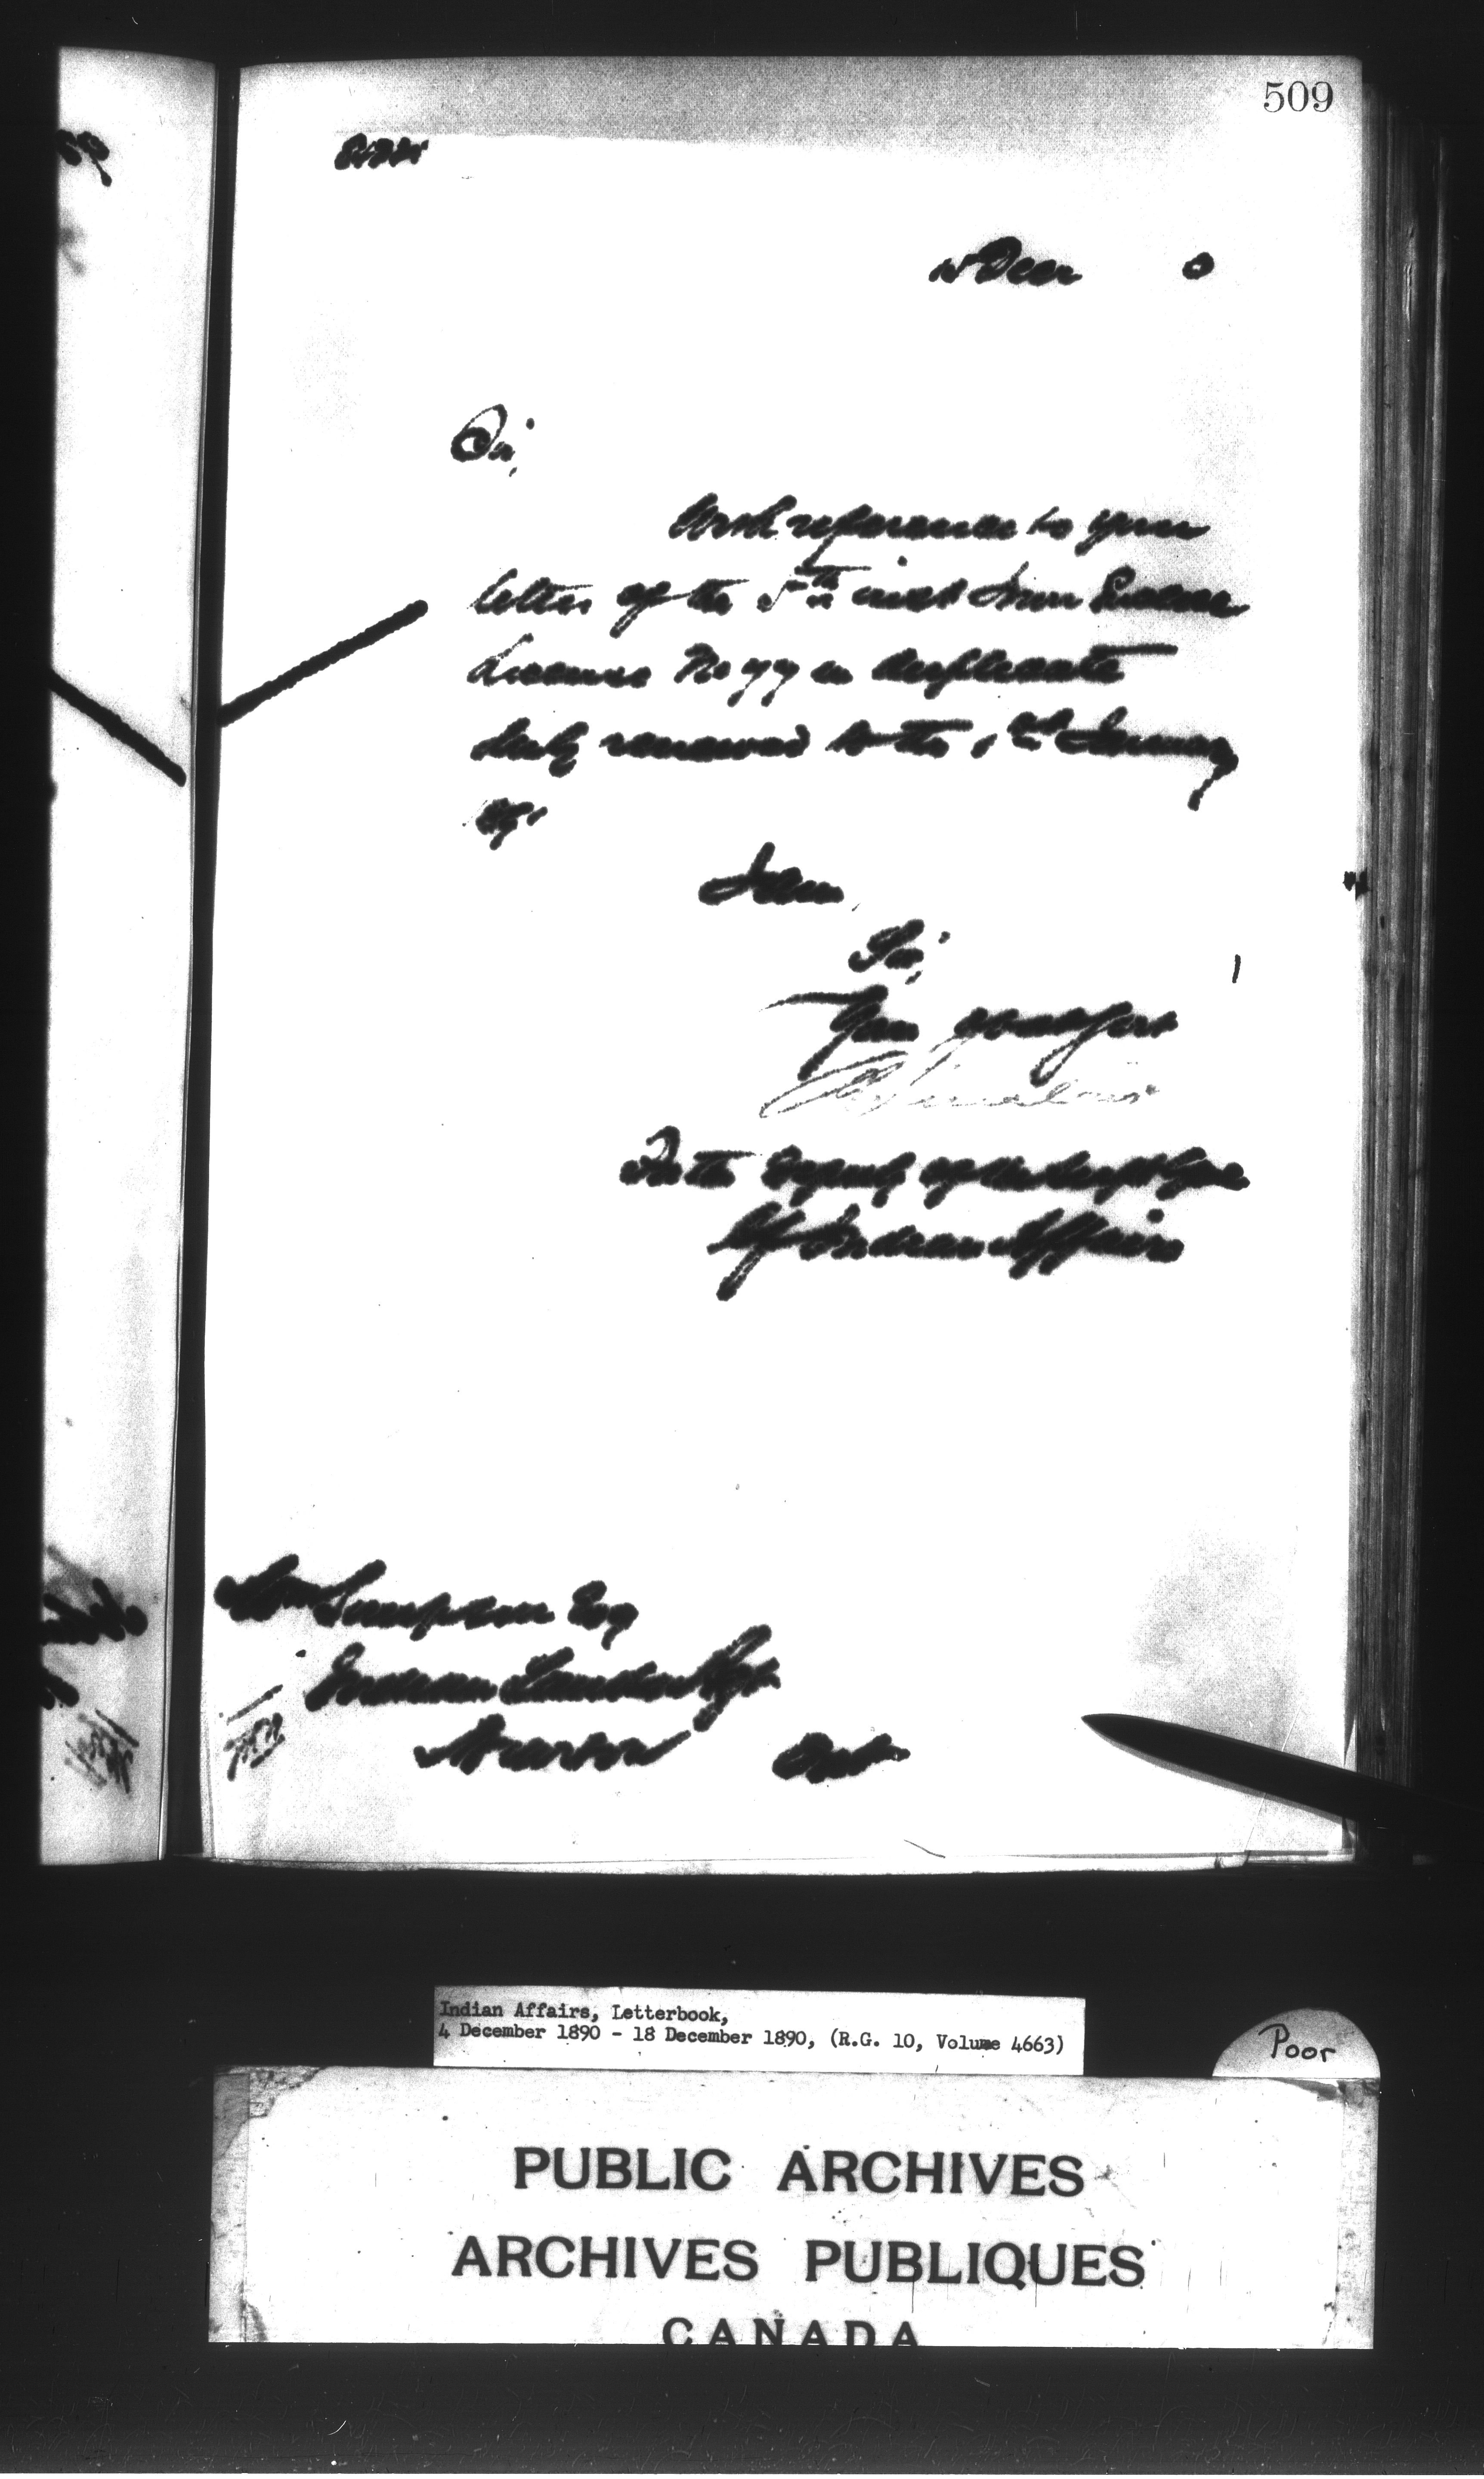 509
Decr 0
Sir,
With reference to your
letter of the 5th inst I now enclose
License No 77 in duplicate
duly renewed to the 1st January
I am,
Sir,
Your obedt Servt
For the Deputy of the Supt Genl
Of Indian Affairs
Wm Simpson Esq
Indian Lands Agt
Wiarton Ont
Indian Affairs, Letterbook,
4 December 1890 - 18 December 1890, (R.G. 10, Volume 4663)
Poor
PUBLIC ARCHIVES
ARCHIVES PUBLIQUES
CANADA